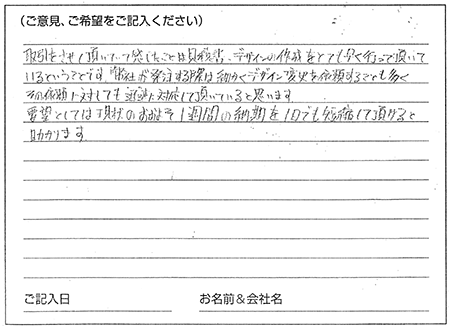 （ご意見、ご希望をご記入ください）
取引をさせて頂いていて感じることは見積書、デザインの作成をとても早く行って頂いて
いるということです。弊社が発注する際は細かくデザイン変更を依頼することも多く
その依頼に対しても迅速に対応して頂いていると思います。
要望としては現状のおおよそ1週間の納期を1日でも短縮して頂けると
助かります。
ご記入日
お名前＆会社名